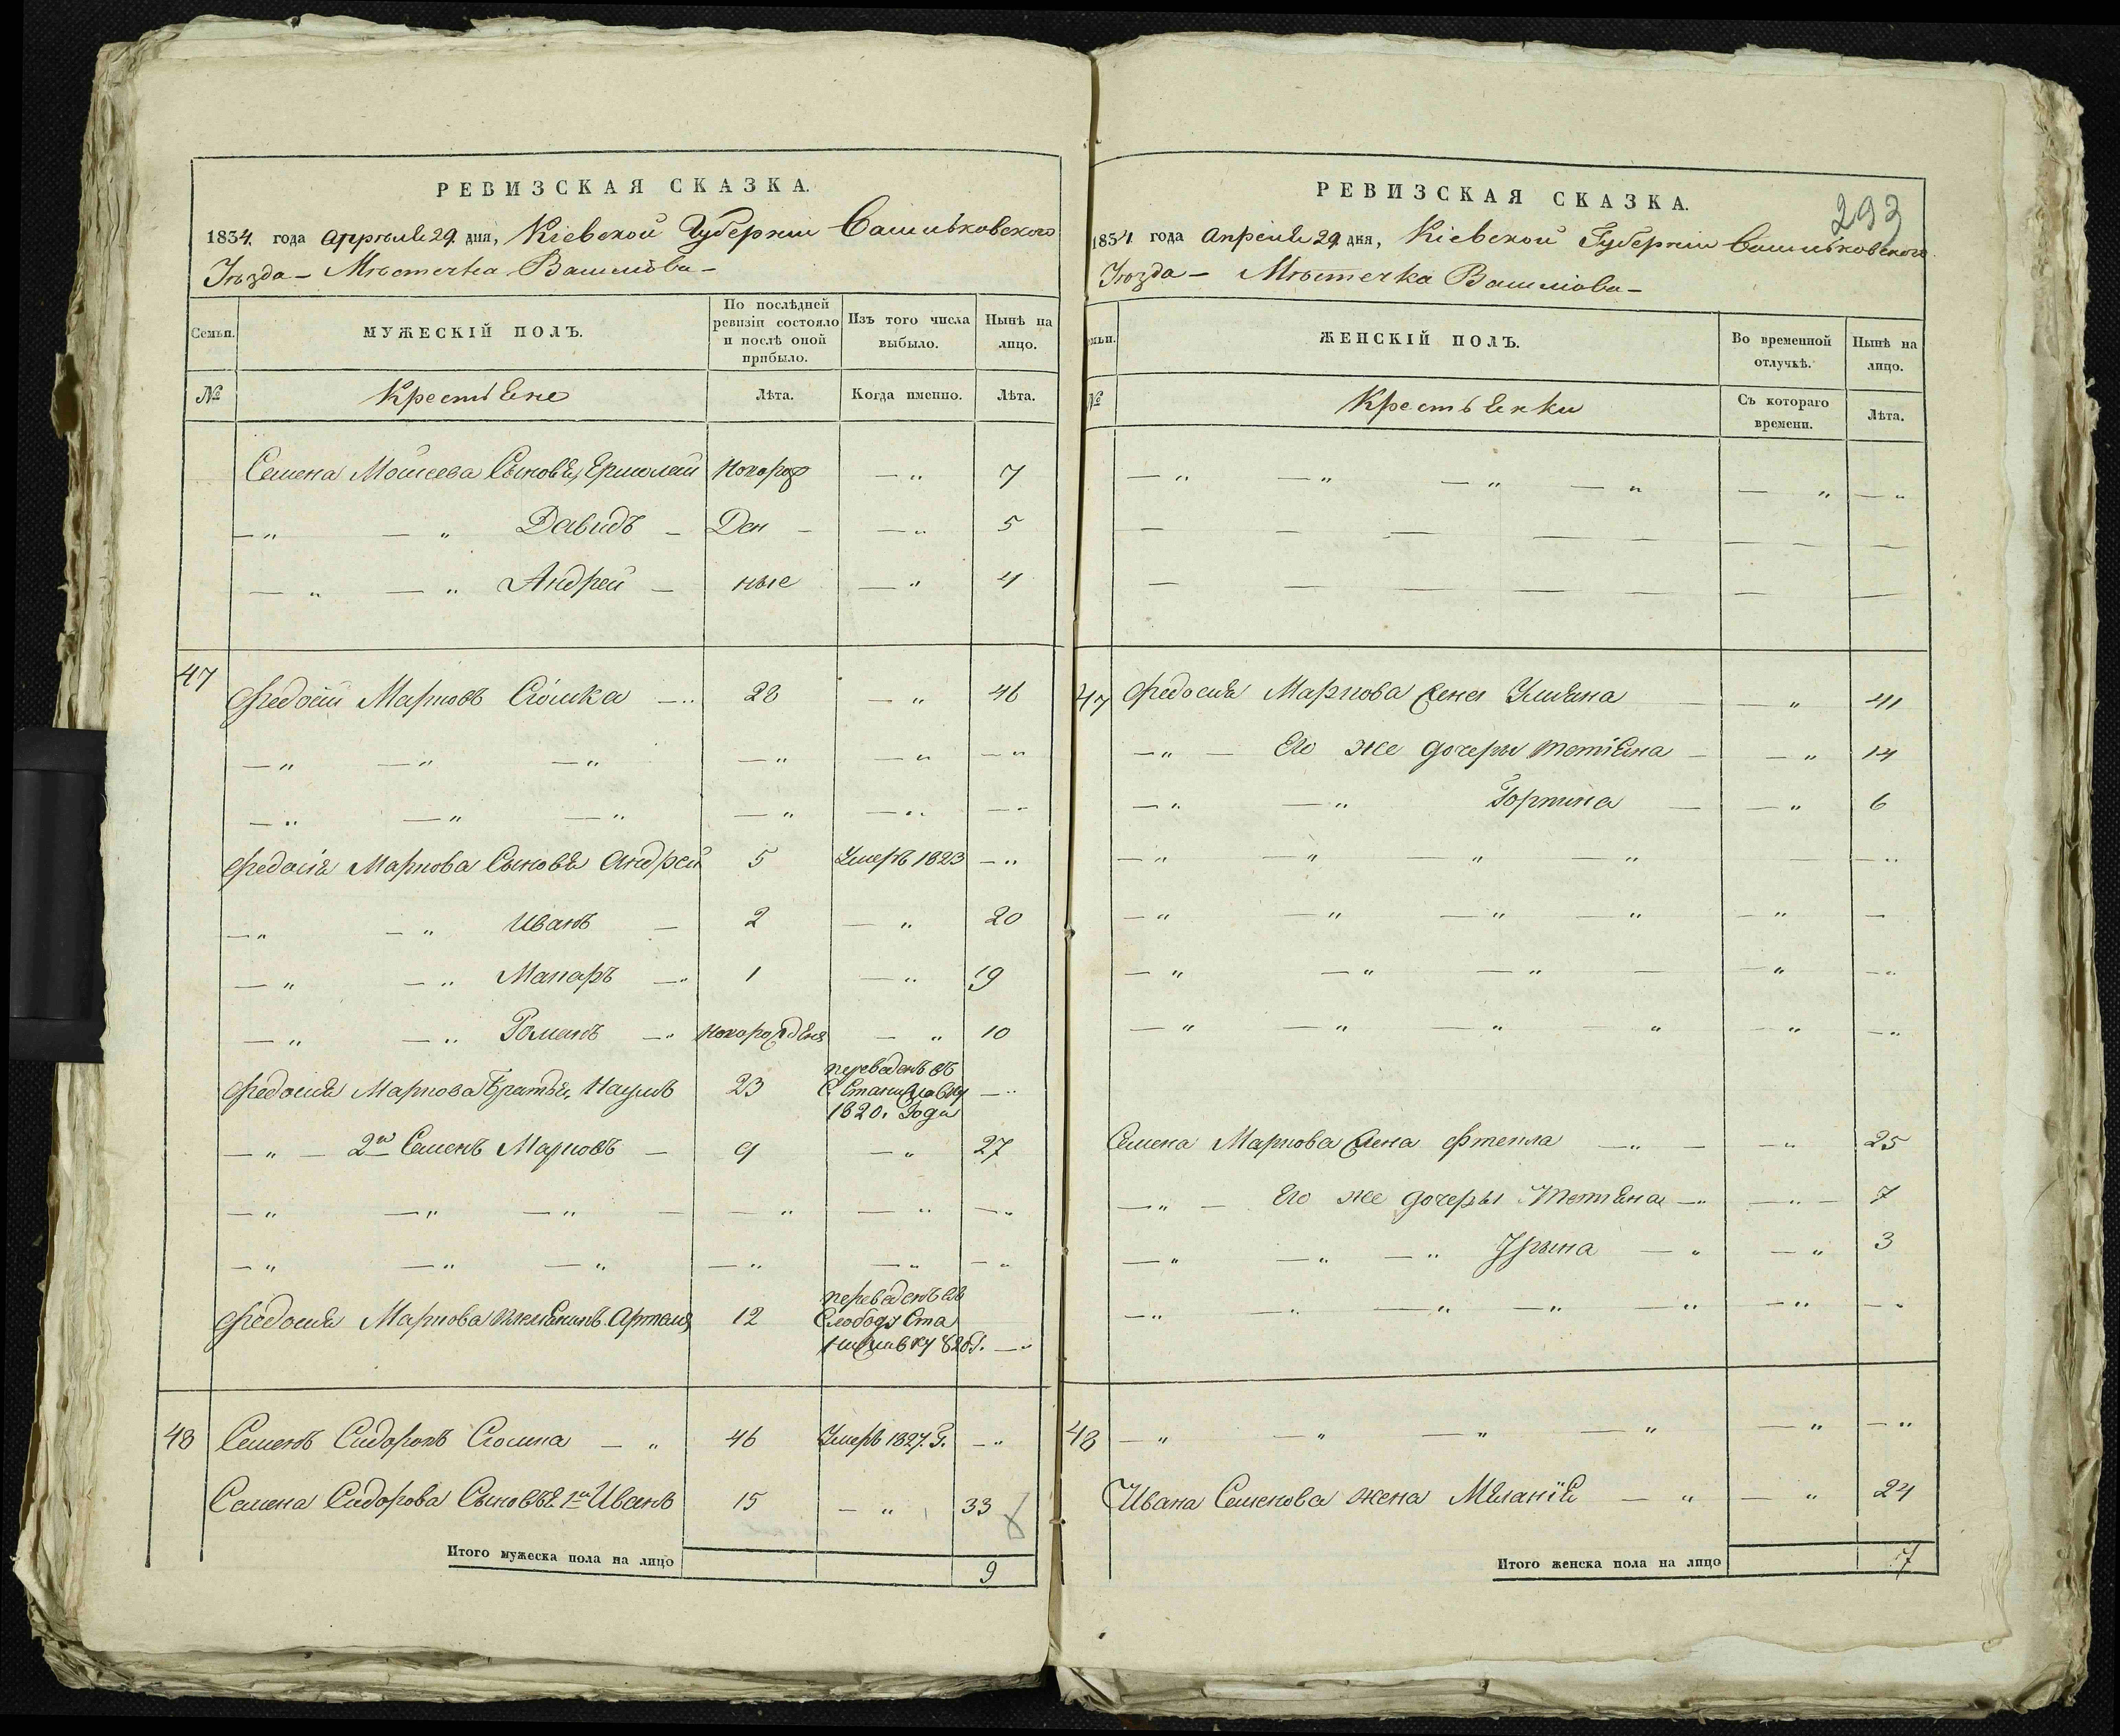 РЕВИЗСКАЯ СКАЗКА.
1834. года Апрѣля 29. дня, Кіевской Губерніи Васильковского
Уѣзда - Мѣстечка Василіова -
Семьи.
МУЖЕСКІЙ ПОЛЪ.
По послѣдней ревизіи состояло и послѣ оной прибыло.
Изъ того числа выбыло.
Нынѣ на лицо.
№
Крестьяне
Лѣта.
Когда именно.
Лѣта.
Семена Моисеева Сыновья, Ермолай новорож — „ 7
— „ — „ Давидъ — Ден — — „ 5
— „ — „ Андрей — ные — „ 4
47 Федосій Марковъ Сіомка — „ 28 — „ 46
— „ — „ — „ — „ — „ — „
— „ — „ — „ — „ — „ — „
Федосія Маркова Сыновья Андрей 5 Умеръ 1823 — „
— „ — „ Иванъ — 2 — „ 20
— „ — „ Макаръ — „ 1 — „ 19
— „ — „ Романъ — „ новорожденя — „ 10
Федосія Маркова Братья, Наумъ 23 переведенъ въ
С. Станиславку — „
1820. Года
— „ — 2й Семенъ Марковъ — 9 — „ 27
— „ — „ — „ — — „ — „ — „
— „ — „ — „ — „ — „ — „
Федосія Маркова племянникъ Артемъ 12 переведенъ въ
Слободу Ста
ниславку 820 Г. — „
48 Семенъ Сидоровъ Сіомка — „ 46 Умеръ 1827. Г. — „
Семена Сидорова Сыновья 1й Иванъ 15 — „ 33
Итого мужеска пола на лицо 9
293
РЕВИЗСКАЯ СКАЗКА.
1834 года Апреля 29 дня, Кіевской Губерніи Васильковского
Уѣзда - Мѣстечка Василіова -
ЖЕНСКІЙ ПОЛЪ.
Во временной отлучкѣ.
Нынѣ на лицо.
№
Крестьянки
Съ котораго времени.
Лѣта.
— „ — „ — „ — „ — „ — „
— — — — — — —
— — — — — — —
47 Федосія Маркова жена Уліана — — „ 41
— „ — Его же дочеры Тетіяна — — „ 14
— „ — „ Горпина — — „ 6
— „ — „ — „ — „ — — „
— „ — „ — „ — „ — „ —
— „ — „ — „ — — „ — „
— „ — „ „ — „ — „ — „
Семена Маркова жена Фтекла — „ — — „ 25
— „ — Его же дочеры Тетіяна — „ — „ — 7
— „ — „ — „ Урына — „ — „ 3
— „ — „ — „ — „ — „ — „ — „
48 — „ — „ — „ — „ — „ — „
Ивана Семенова жена Мяланія — „ — „ 24
Итого женска пола на лицо 7